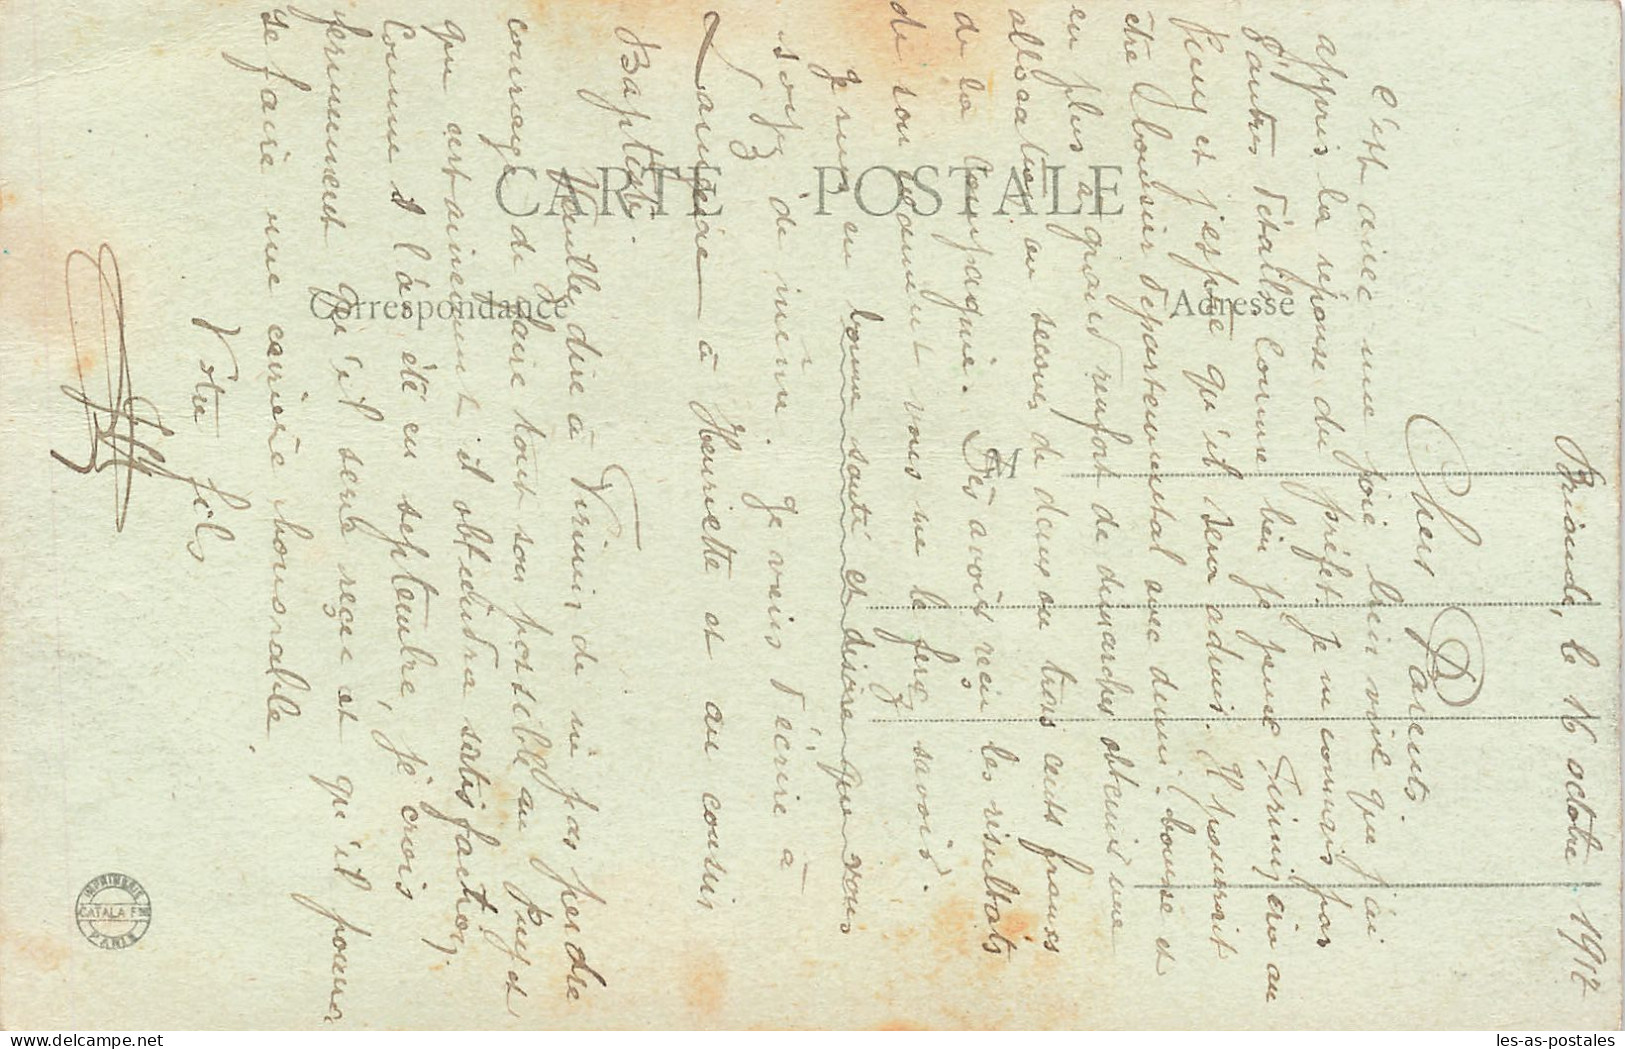 CARTE POSTALE
Correspondance
Adresse
Brioude, le 16 octobre 1912
Chers Parents.
C'est avec une joie bien vive que j'ai
appris la réponse du préfet. Je ne connais pas
d'autres détails. Comme bien je pense Firmin, ira au
Puy et j'espère qu'il sera admis. Il pourrait
être boursier départemental avec demi-bourse et
en plus à grand renfort de démarches obtenir une
allocation ou secours de deux ou trois cents francs
de la compagnie. Dès avoir reçu les résultats
de son examen vous me le ferez savoir.
Je suis en bonne santé et désire que vous
soyez de même. Je vais d'écrire à
Lamarie à Henriette et au cousin
Baptiste.
Veuillez dire à Firmin de ne pas perdre
courage, de faire tout son possible au Puy et
que certainement il obtiendra satisfaction.
Comme s'l'a été en septembre, je crois
fermement qu'il sera reçu et qu'il pourra
se faire une carrière honorable.
Votre fils
IMPRIMERIE
CATALA Frères
PARIS
les-as-postales